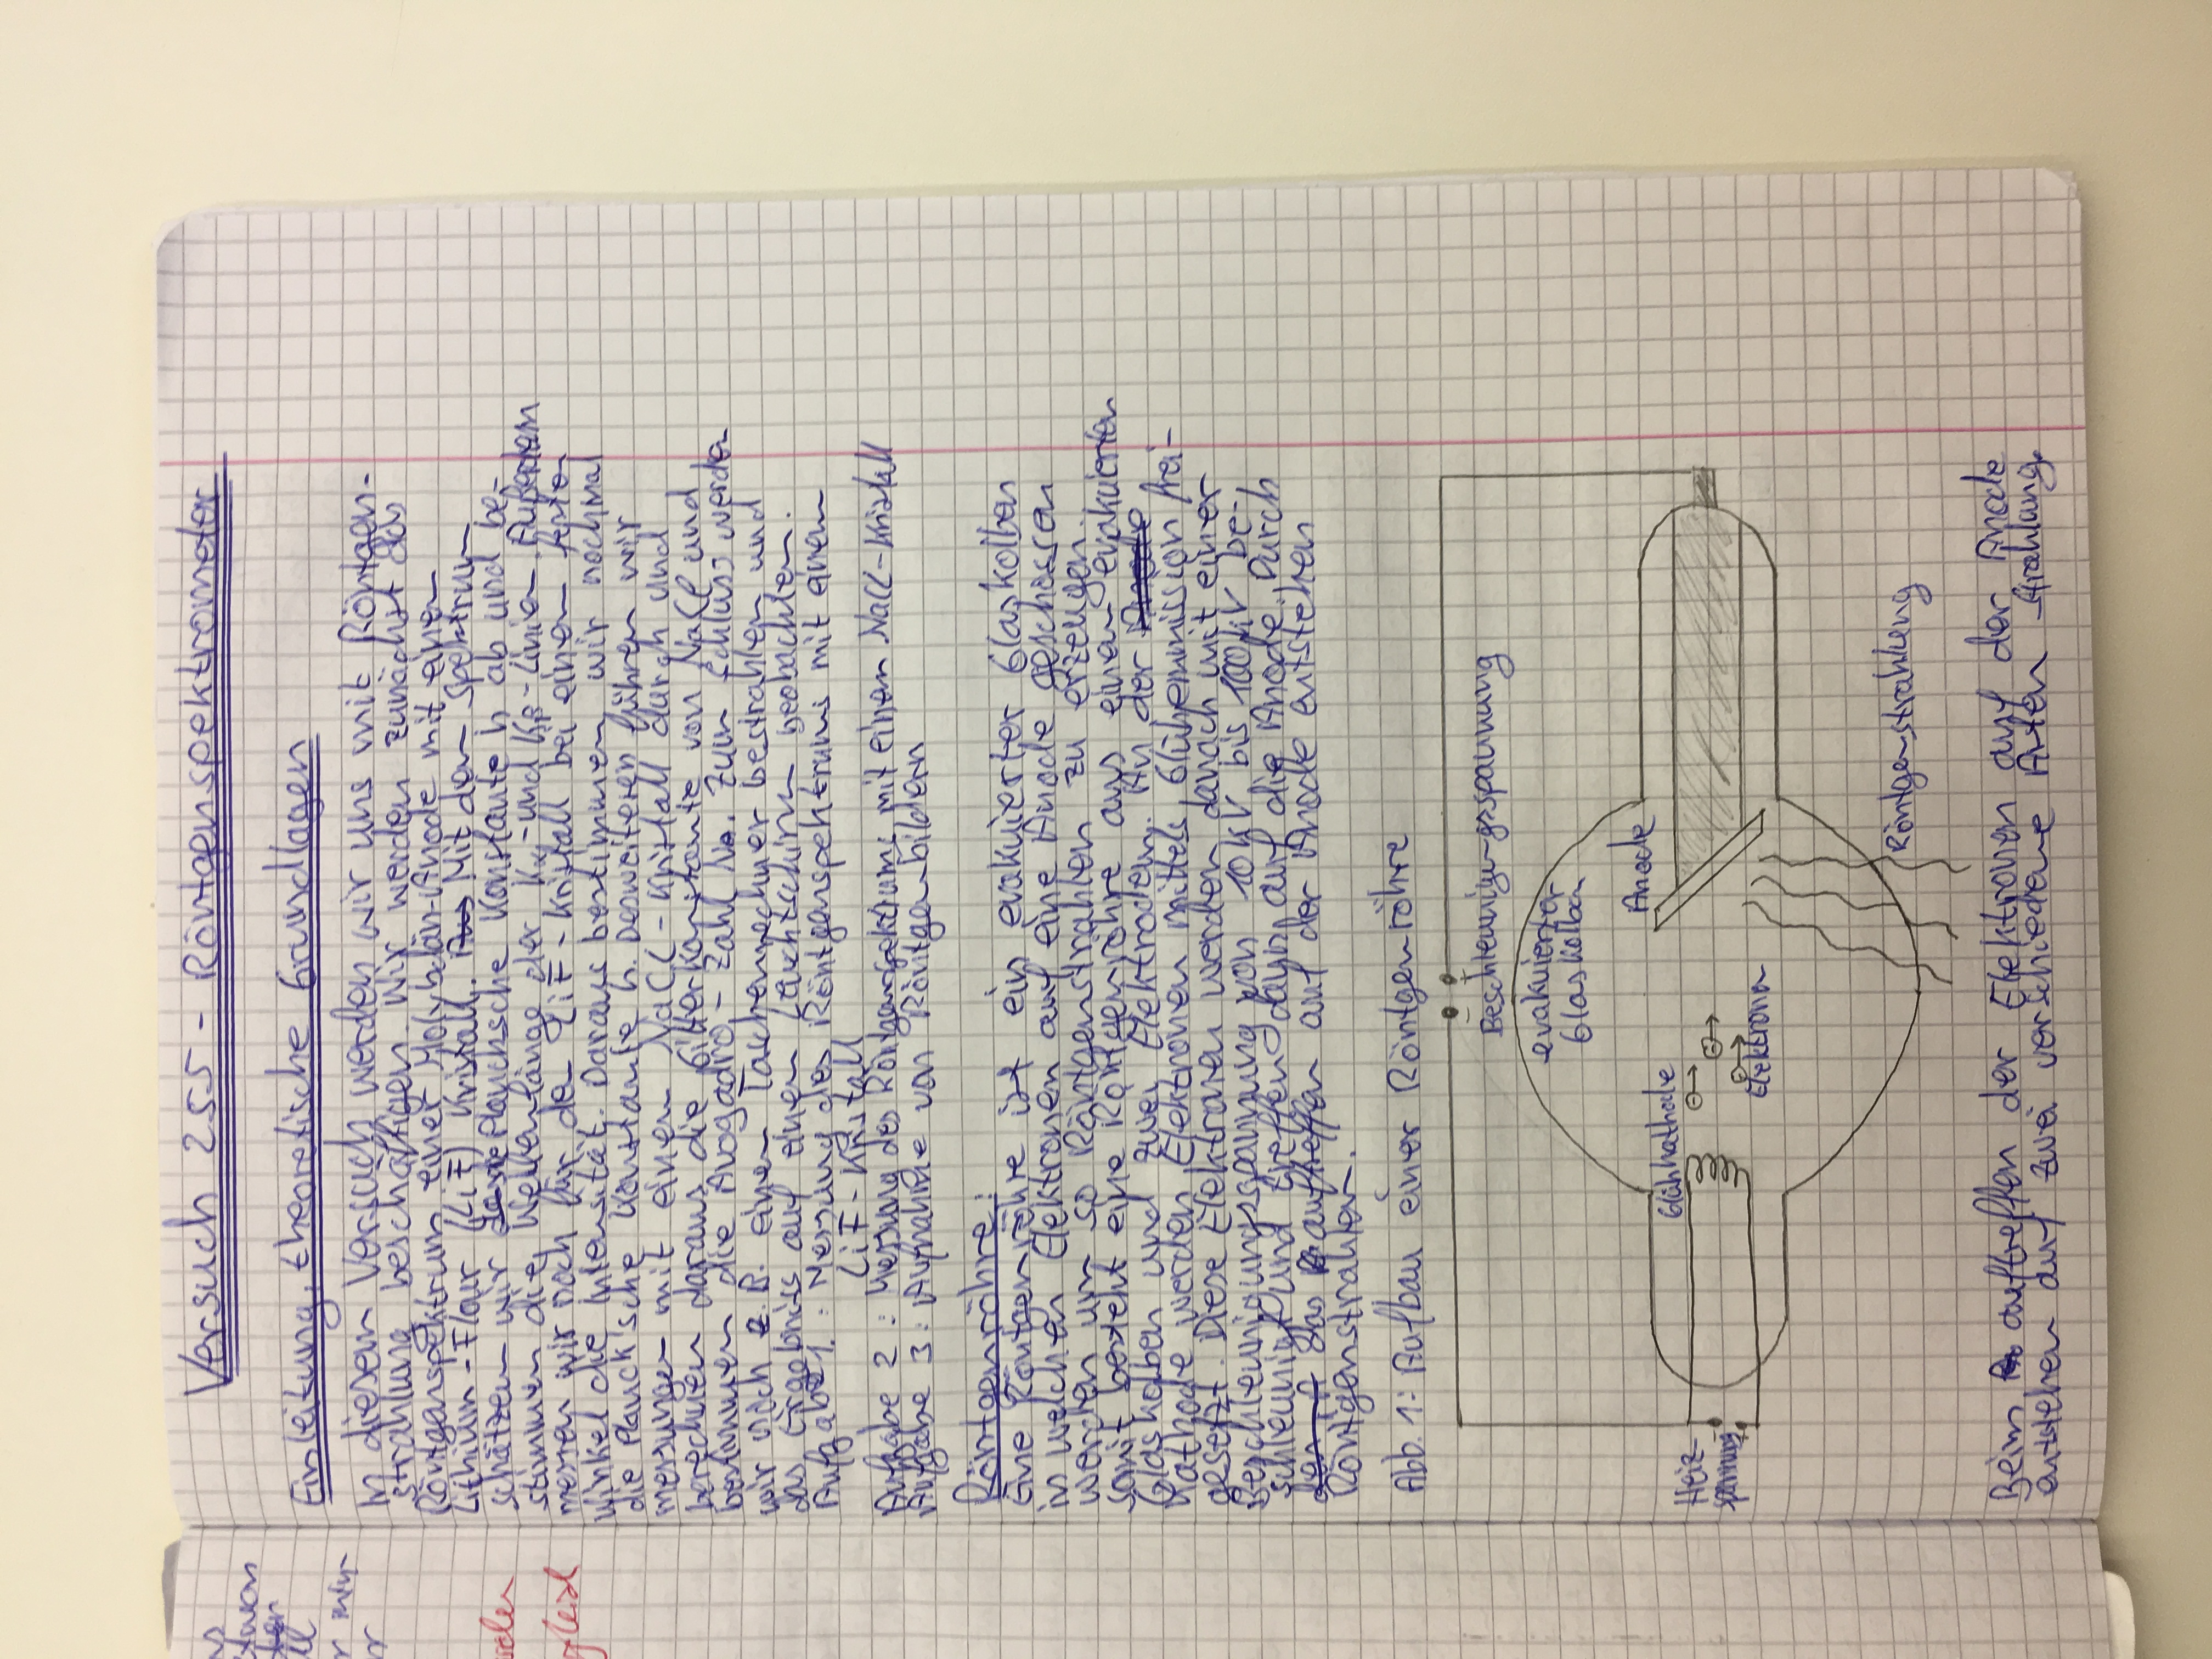 Versuch 255 - Röntgenspektrometer
Einleitung, theoretische Grundlagen
In diesem Versuch werden wir uns mit Röntgen-
strahlung beschäftigen. Wir werden zunächst das
Röntgenspektrum einer Molybdän-Anode mit einem
Lithium-Flour (LiF) Kristall. Mit dem Spektrum
schätzen wir Plancksche Konstante h ab und be-
stimmen die Wellenlänge der Kα- und Kβ-Linien. Außerdem
messen wir noch für den LiF-Kristall bei einem festen
Winkel die Intensität. Daraus bestimmen wir nochmal
die Planck'sche Konstante h. Desweiteren führen wir
messungen mit einem NaCl-Kristall durch und
berechnen daraus die Gitterkonstante von NaCl und
bestimmen die Avogadro-Zahl NA. Zum Schluss werden
wir noch z.B. einen Taschenrechner bestrahlen und
das Ergebniss auf einem Leuchtschirm beobachten.
Aufgabe 1. : Messung des Röntgenspektrums mit einem
LiF-Kristall
Aufgabe 2 : Messung des Röntgenspektrums mit einem NaCl-Kristall
Aufgabe 3 : Aufnahme von Röntgenbildern
Röntgenröhre:
Eine Röntgenröhre ist ein evakuierter Glaskolben
in welchen Elektronen auf eine Anode geschossen
werden um so Röntgenstrahlen zu erzeugen.
somit besteht eine Röntgenröhre aus einem evakuierten
Glaskolben und zwei Elektroden. An der Anode
Kathode werden Elektronen mittels Glühemmission frei-
gesetzt. Diese Elektronen werden danach mit einer
Beschleunigungsspannung von 10kV bis 100kV be-
schleunigt und treffen dann auf die Anode. Durch
das auftreffen auf der Anode entstehen
Röntgenstrahlen.
Abb. 1: Aufbau einer Röntgenröhre
- +
Beschleunigungsspannung
evakuierter
Glaskolben
Anode
Glühkathode
Heiz-
spannung
Elektronen
Röntgenstrahlung
Beim auftreffen der Elektronen auf der Anode
entstehen auf zwei verschiedene Arten Strahlung.
den
gleich